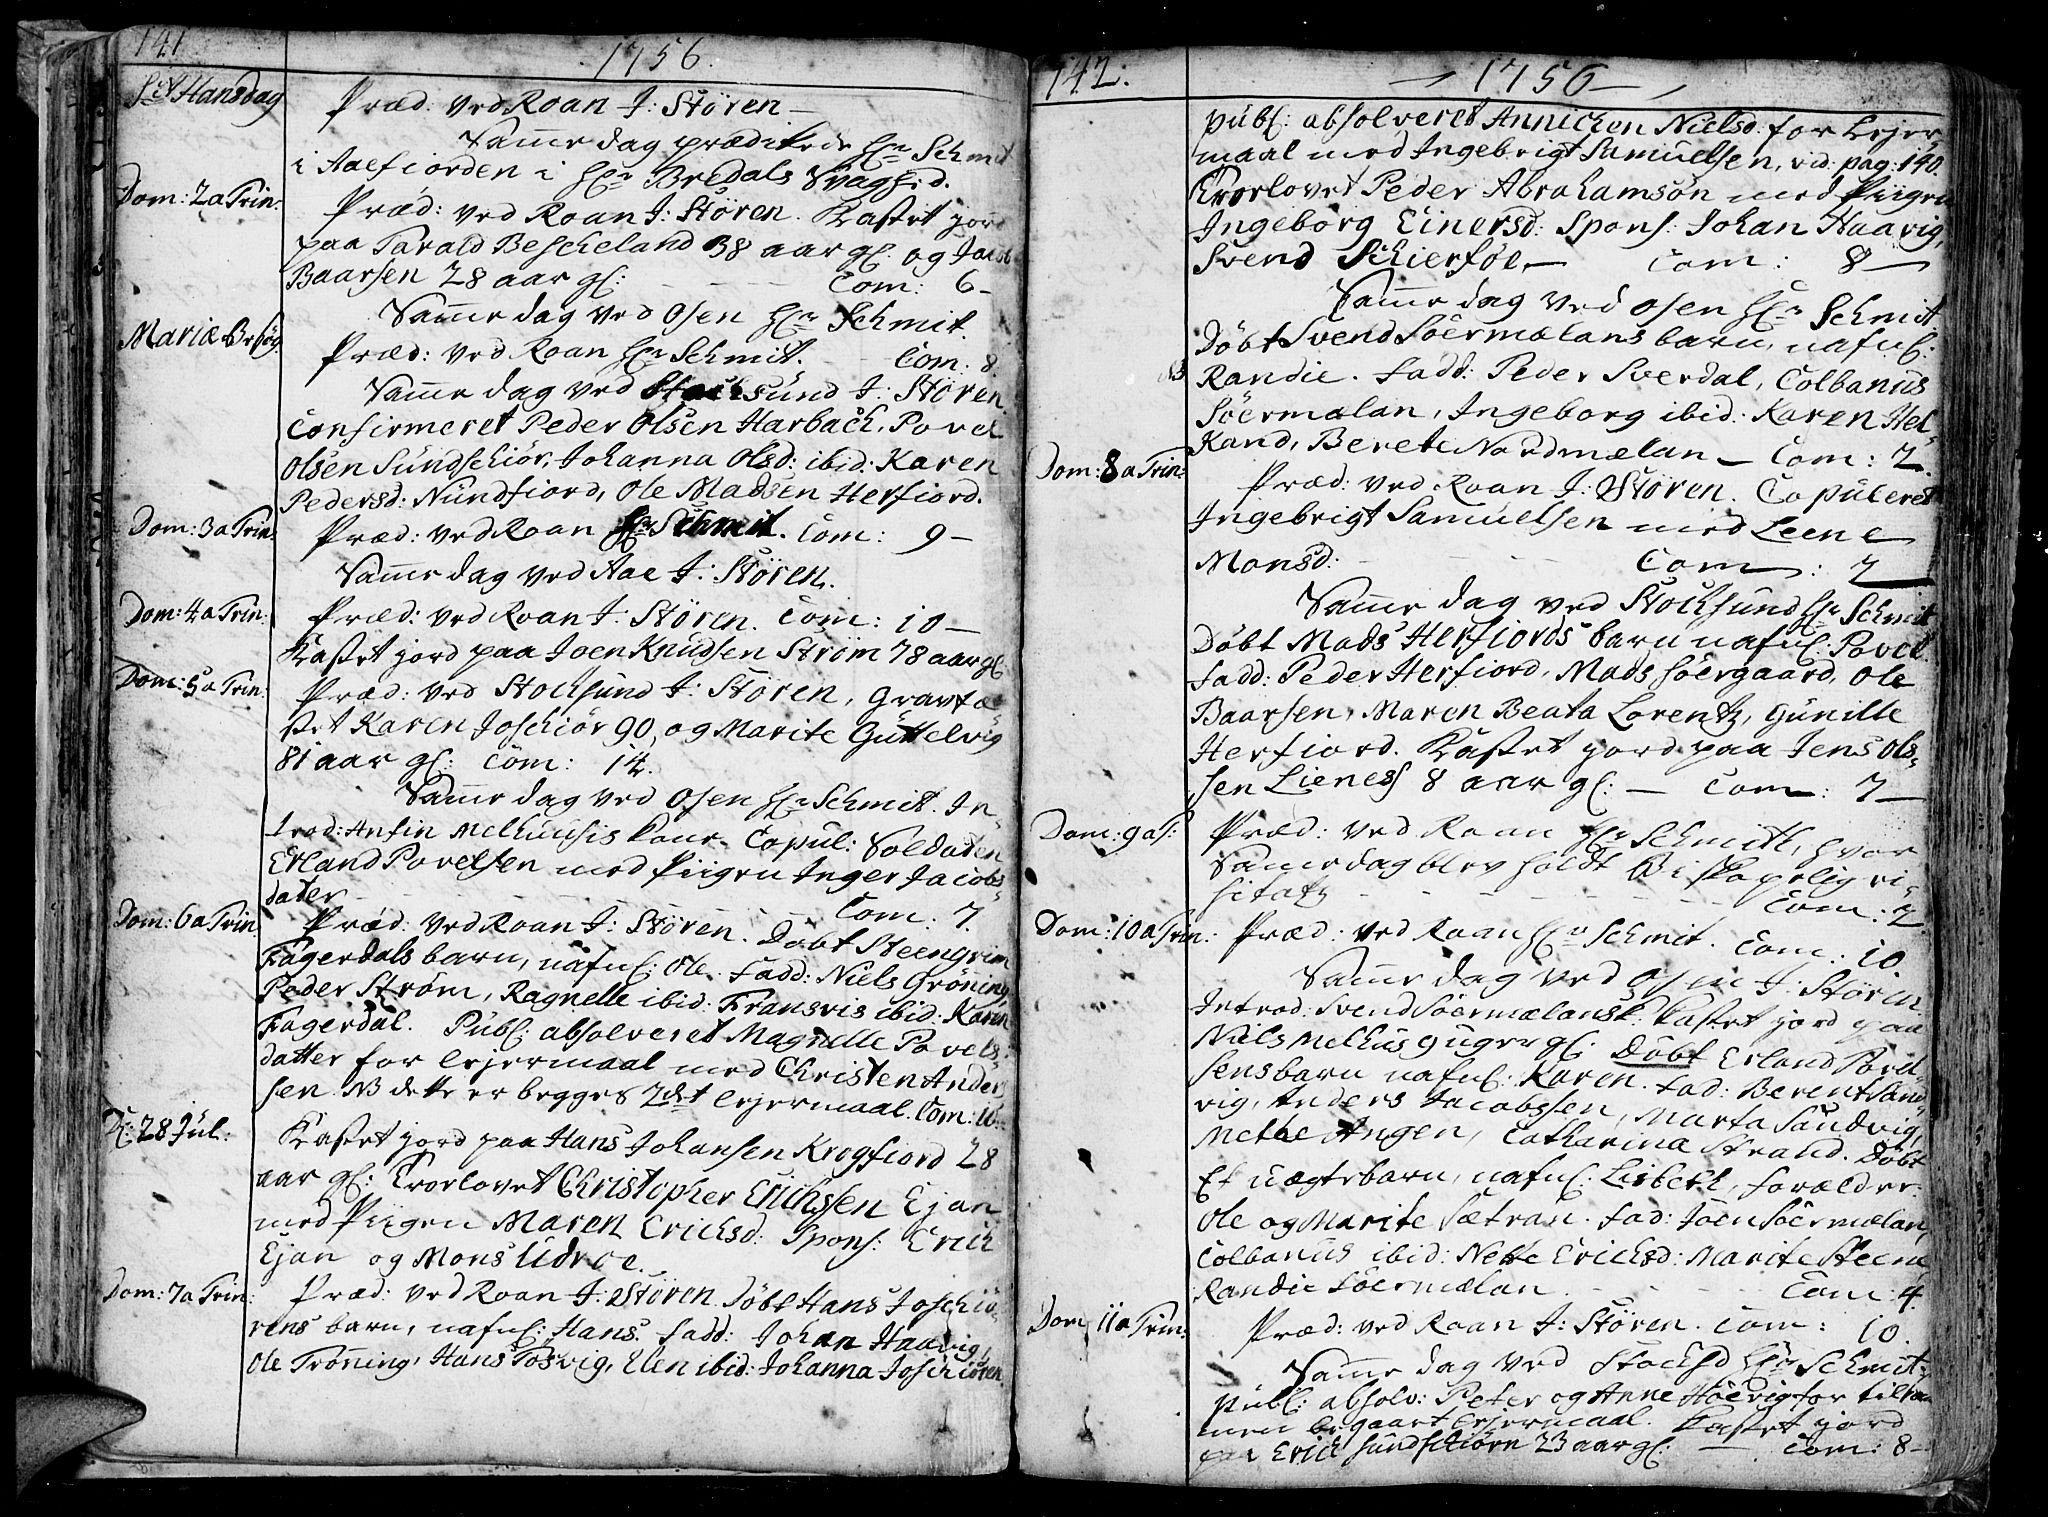 141
1756.
St Hansdag
Præd: ved Roan J: Stören
Samme dag prædikede Hr Schmit
i Aaefiorden i Hr Bredals Svaghed.
Dom: 2 a Trin:
Præd: ved Roan J: Stören. Kastet jord
paa Tarald Bescheland 38 aar gl: og Jacob
Baarsen 28 aar gl: Com: 6
Samme dag ved Osen Hr Schmit.
Mariæ Besög.
Præd: ved Roan Hr Schmit. Com: 8.
Samme dag ved Stocksund J: Stören
Confirmeret Peder Olsen Harbach, Povel
Olsen Sundschiör, Johanna Olsd: ibid: Karen
Pedersd: Nundfiord, Ole Madsen Herfiord.
Dom: 3 a Trin:
Præd: ved Roan Hr Schmit. Com: 9
Samme dag ved Aae J: Stören.
Dom: 4 a Trin:
Præd: ved Roan J: Stören. Com: 10
Kastet jord paa Joen Knudsen Ström 78 aar gl:
Dom: 5 a Trin:
Præd: ved Stocksund J: Stören, Gravfæ
stet Karen Joschiör 90, og Marite Guttelvig
81 aar gl: Com: 14.
Samme dag ved Osen Hr Schmit. In-
trod: Anfin Melhuusis kone. Copul: Soldaten
Erland Povelsen med Piigen Inger Jacobs
dater Com: 7.
Dom: 6 a Trin
Præd: ved Roan J: Stören. Döbt Steengrim
Fagerdals barn, nafnl: Ole. Fadd: Niels Gröning,
Peder Ström, Ragnelle ibid: Fransvis ibid: Karen
Fagerdal. Publ: absolveret Magnelle Povels
datter for Lejermaal med Christen Ander
sen. NB dette er begges 2det Lejermaal. Com: 16.
D: 28 Jul:
Kastet jord paa Hans Johansen Krogfiord 28
aar gl: Trorlovet Christopher Erichsen Ejan
med Piigen Maren Ericksd: Spons: Erich
Ejan og Mons Udroe.
Dom: 7 a Trin:
Præd: ved Roan J: Stören. Döbt Hans Joschiö-
rens barn, nafnl: Hans. Fadd: Johan Haavig,
Ole Tröning, Hans Posvig, Elen ibid: Johanna Joschiören
142.
1756
publ: absolveret Annichen Nielsd: for Lejer
maal med Ingebrigt Samuelsen, vid: pag: 140.
Trorlovet Peder Abrahamsön med Piigen
Ingeborg Einersd: Spons: Johan Haavig,
Svend Schierföe. Com: 8
Samme dag ved Osen Hr Schmit
Döbt Svend Söermælans barn, nafnl:
Randie. Fadd: Peder Sverdal, Colbanus
Söermælan, Ingeborg ibid: Karen Hel-
Kand, Berete Nordmælan Com: 7.
Dom: 8 a Trin:
Præd: ved Roan J: Stören. Copuleret
Ingebrigt Samuelsen med Leene
Monsd: Com: 7
Samme dag ved Stocksund Hr Schmit
Döbt Mads Herfiords barn nafnl: Povel.
Fadd: Peder Herfiord, Mads Söergaard, Ole
Baarsen, Maren Beata Lorentz, Gunille
Herfiord. Kastet jord paa Jens Ols-
sen Lieness 8 aar gl: Com: 7
Dom: 9 a S:
Præd: ved Roan Hr Schmith, hvor
Samme dag blev holdt Biskopelig vi-
sitatz Com: 2
Dom: 10 a Trin:
Præd: ved Roan Hr Schmit. Com: 10.
Samme dag ved Osen J: Stören
Introd: Svend Söermælansk: Kastet jord paa
Niels Melhus 9 uger gl: Döbt Erland Povel-
sens barn nafnl: Karen. Fad: Berent Sand
vig, Anders Jacobssen, Marta Sandvig,
Mette Angen, Catharina Strand. Döbt
Et uægte barn, nafnl: Lisbeth, forældre
Ole og Marite Sætran. Fad: Joen Söermælan,
Colbanus ibid: Nette Ericksd: Marite Steen
Randie Söermælan. Com: 4.
Dom 11 a Trin:
Præd: ved Roan J: Stören. Com: 10.
Samme dag ved Stocksd Hr Schmit
publ: absolv: Peter og Anne Höevig for tilsa
men begaaet Lejermaal. Kastet jord
paa Erich Sundschiörn 23 aar gl: Com: 8